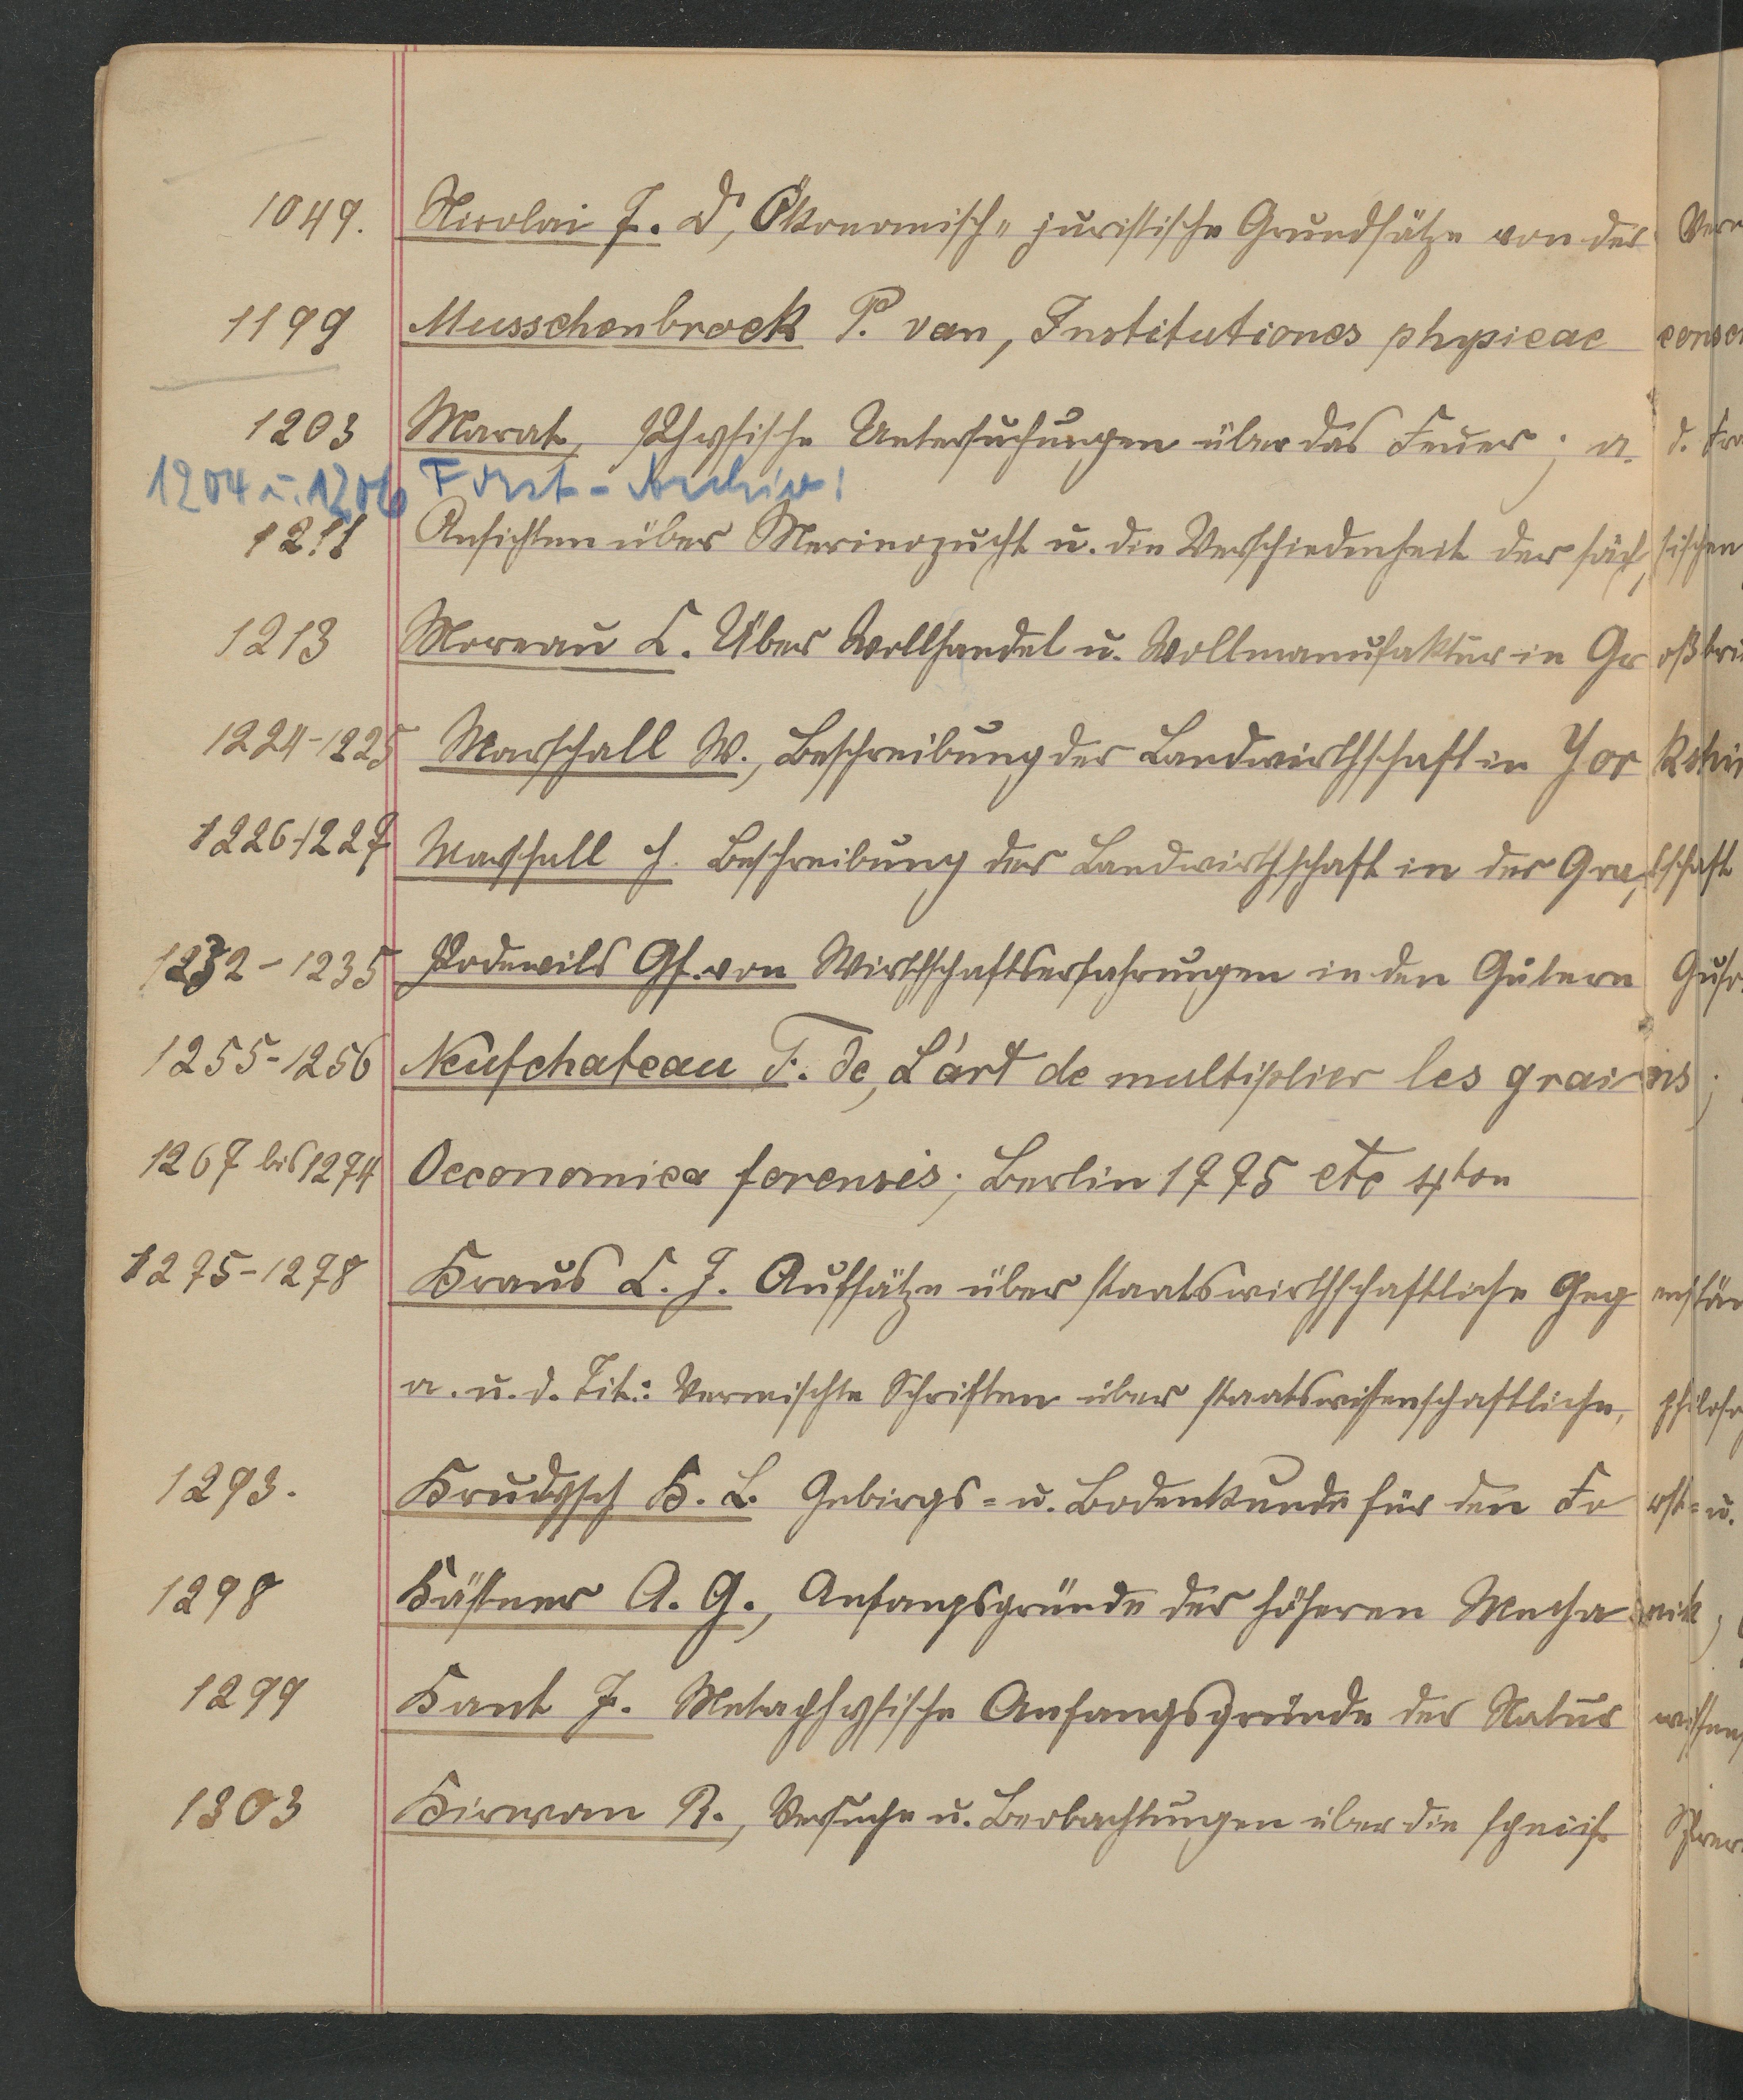 1049. Nicolai J. D, Ökonomisch-juristische Grundsätze von der Ver
1199 Musschenbroek P. van, Institutiones physicae conscr
1203 Marat, Physische Untersuchungen über das Feuer; a. d. Fra
1204 u. 1206 Forst-Archiv!
1211 Ansichten über Merinozucht u. die Verschiedenheit der säch,sischen
1213 Moreau C. Über Wollhandel u. Wollmanufaktur in Großbri
1224-1225 Marschall W., Beschreibung der Landwirthschaft in Yorkshir
1226-1227 Marschall H. Beschreibung der Landwirthschaft in der Grafschaft
1232-1235 Podewils Gf. von Wirthschaftserfahrungen in den Gütern Guso
1255-1256 Neufchateau F. de, L'árt de multiplier les grains;
1267 bis 1274 Oeconomica forensis; Berlin 1775 etc 4ton
1275-1278 Kraus C. J. Aufsätze über staatswirthschaftliche Gegenstän
a. u. d. Tit.: Vermischte Schriften über staatswissenschaftliche, philoso
1293. Krutzsch K. L. Gebirgs- u. Bodenkunde für den Forst- u.
1298 Kästner A. G., Anfangsgründe der höheren Mechanik;
1299 Kant J. Metaphysische Anfangsgründe der Naturwissen
1303 Kirwan R., Versuche u. Beobachtungen über die specif. Schwer